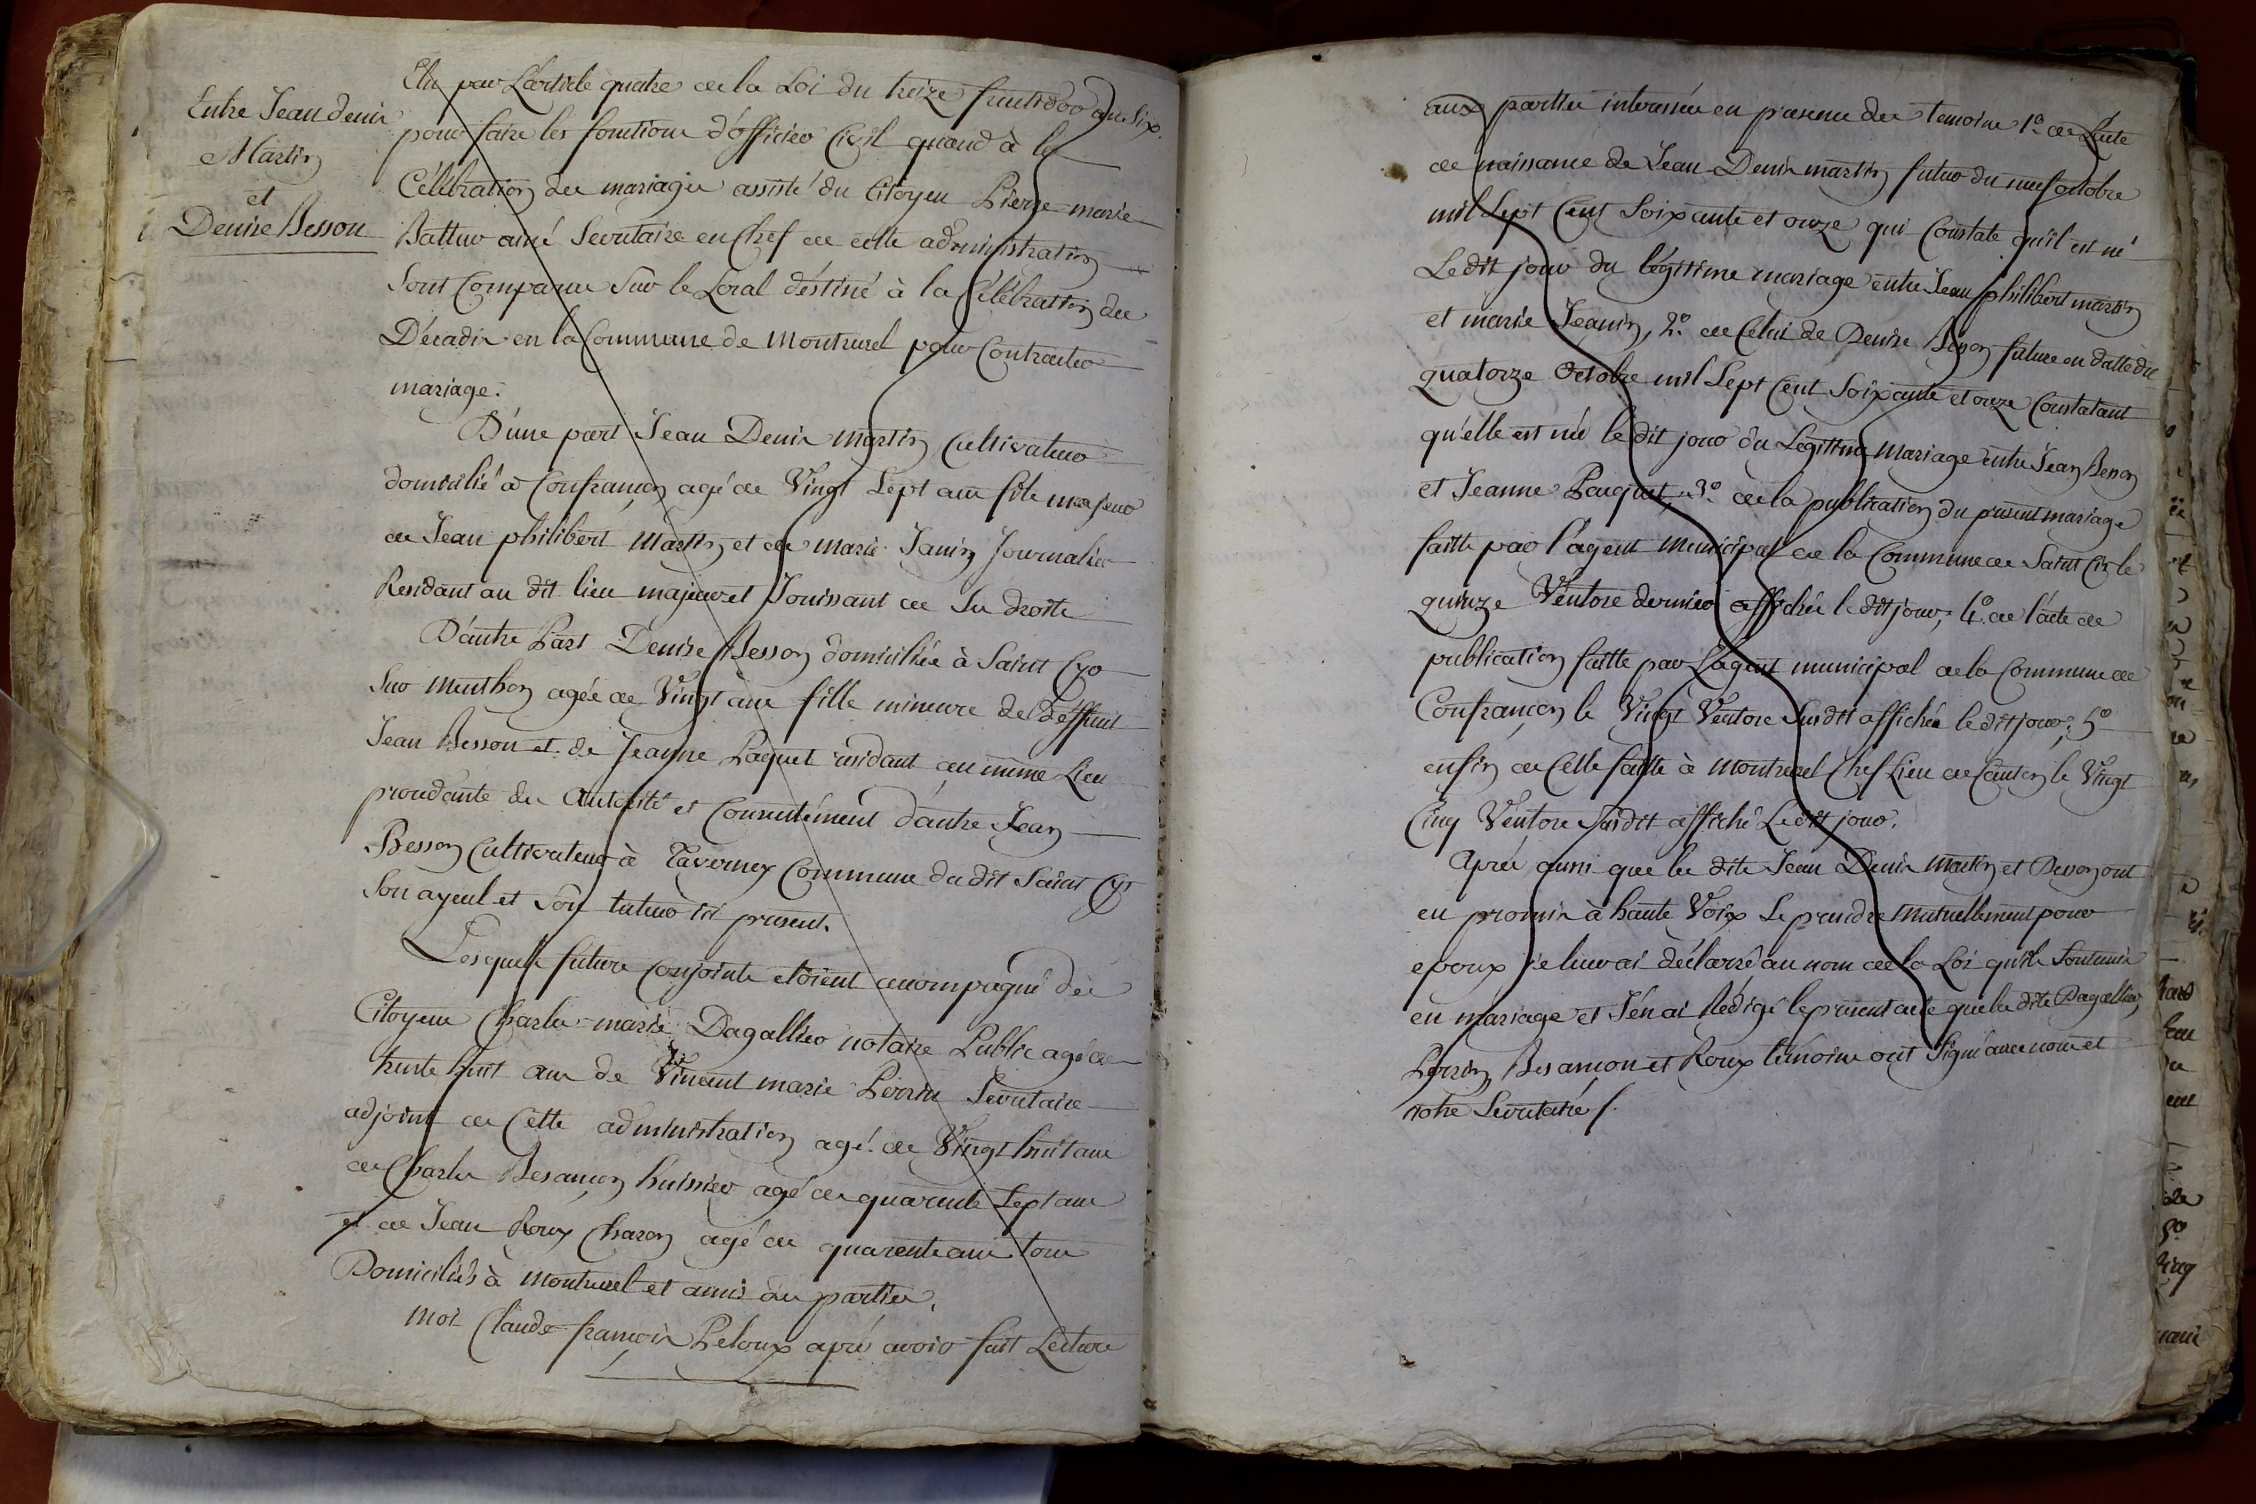 Entre Jean denis
Martin
et
Denise Besson
Elu par L'article quatre de la Loi du treize fructidor an Six.
pour faire les fonctions d'officier Civil quand à la
Célébration des mariages assisté du Citoyen Pierre-marie
Battur ainé Secretaire en Chef de cette administration
Sont Comparus Sur le Local déstiné à la Célébration des
Décadis en la Commune de Montrevel pour Contracter
mariage.
D'une part Jean Denis Martin Cultivateur
domicilié à Confrançon agé de Vingt Sept ans fils majeur
de Jean philibert Martin et de marie Janin Journalier
Residant au dit lieu majeur et Jouissant de Ses droits
D'autre Part Denise Besson domiciliée à Saint Cyr
Sur Menthon agée de Vingt ans fille mineure de Déffunt
Jean Besson et de Jeanne Paquet résidant au même Lieu
procédante de Autorité et Consentément d'autre Jean
Besson Cultivateur à Taverney Commune du dit Saint Cyr
Son ayeul et Son tuteur ici présent.
Lesquels futurs Conjoints etoient accompagné des
Citoyens Charles-marie Dagallier notaire Public agé de
trente huit ans de Vincent marie Perrin Secretaire
adjoint de Cette administration agé de Vingt huit ans
de Charles Besançon huissier agé de quarante Sept ans
et de Jean Roux Charon agé de quarente ans tous
Domiciliés à Montrevel et amis des parties.
Moi Claude-françois Peloux après avoir fait Lecture
aux parties intéressées en présence des temoins 1º. de L'acte
de naissance de Jean-Denis martin futur du neuf octobre
mil Sept Cent Soixante et onze qui Constate qu'il est né
Ledit jour du légitime mariage entre Jean philibert martin
et marie Jeanin, 2º. de Celui de Denise Besson future en datte du
quatorze Octobre mil Sept Cent Soixante et onze Constatant
qu'elle est née le dit jour du Légitime Mariage entre Jean Besson
et Jeanne Pauquet, 3º. de la publication du présent mariage
faitte par l'agent Municipal de la Commune de Saint Cir le
quinze Ventose dernier affichée le dit jour, 4º. de l'acte de
publication faitte par L'agent municipal de la Commune de
Confrançon le Vingt Ventose Susdit affichée le dit jour; 5º
enfin de Celle faitte à Montrevel Chef Lieu de Canton le Vingt
Cinq Ventose Susdit affiché Ledit jour.
Après aussi que les dits Jean Denis Martin et Besson ont
eu promis à haute Voix Se prendre Mutuellement pour
epoux je leur ai déclarré au nom de la Loi qu'ils Sont unis
en mariage et J'en ai Rédigé le présent acte que les dits Dagallier,
Perrin, Besançon et Roux témoins ont Signé avec nous et
notre Secretaire /.